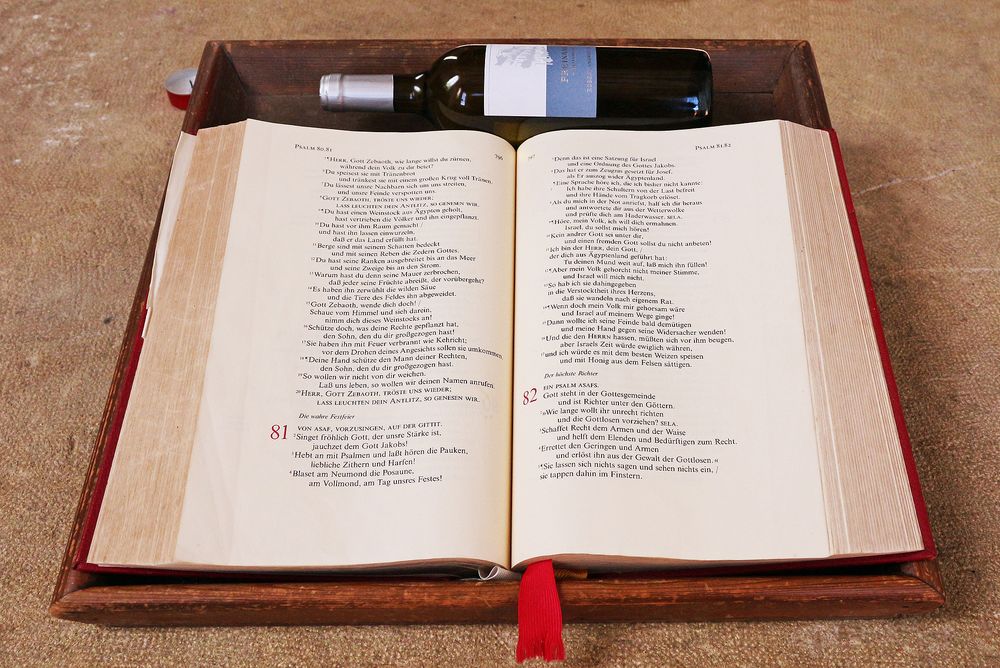 PSALM 80.81
796
⁵HERR, Gott Zebaoth, wie lange willst du zürnen,
während dein Volk zu dir betet?
⁶Du speisest sie mit Tränenbrot
und tränkest sie mit einem großen Krug voll Tränen.
⁷Du lässest unsre Nachbarn sich um uns streiten,
und unsre Feinde verspotten uns.
⁸GOTT ZEBAOTH, TRÖSTE UNS WIEDER;
LASS LEUCHTEN DEIN ANTLITZ, SO GENESEN WIR.
⁹Du hast einen Weinstock aus Ägypten geholt,
hast vertrieben die Völker und ihn eingepflanzt.
¹⁰Du hast vor ihm Raum gemacht /
und hast ihn lassen einwurzeln,
daß er das Land erfüllt hat.
¹¹Berge sind mit seinem Schatten bedeckt
und mit seinen Reben die Zedern Gottes.
¹²Du hast seine Ranken ausgebreitet bis an das Meer
und seine Zweige bis an den Strom.
¹³Warum hast du denn seine Mauer zerbrochen,
daß jeder seine Früchte abreißt, der vorübergeht?
¹⁴Es haben ihn zerwühlt die wilden Säue
und die Tiere des Feldes ihn abgeweidet.
¹⁵Gott Zebaoth, wende dich doch! /
Schaue vom Himmel und sieh darein,
nimm dich dieses Weinstocks an!
¹⁶Schütze doch, was deine Rechte gepflanzt hat,
den Sohn, den du dir großgezogen hast!
¹⁷Sie haben ihn mit Feuer verbrannt wie Kehricht;
vor dem Drohen deines Angesichts sollen sie umkommen.
¹⁸Deine Hand schütze den Mann deiner Rechten,
den Sohn, den du dir großgezogen hast.
¹⁹So wollen wir nicht von dir weichen.
Laß uns leben, so wollen wir deinen Namen anrufen.
²⁰HERR, GOTT ZEBAOTH, TRÖSTE UNS WIEDER;
LASS LEUCHTEN DEIN ANTLITZ, SO GENESEN WIR.
Die wahre Festfeier
81 VON ASAF, VORZUSINGEN, AUF DER GITTIT.
²Singet fröhlich Gott, der unsre Stärke ist,
jauchzet dem Gott Jakobs!
³Hebt an mit Psalmen und laßt hören die Pauken,
liebliche Zithern und Harfen!
⁴Blaset am Neumond die Posaune,
am Vollmond, am Tag unsres Festes!
797
PSALM 81.82
⁵Denn das ist eine Satzung für Israel
und eine Ordnung des Gottes Jakobs.
⁶Das hat er zum Zeugnis gesetzt für Josef,
als Er auszog wider Ägyptenland.
Eine Sprache höre ich, die ich bisher nicht kannte:
⁷Ich habe ihre Schultern von der Last befreit
und ihre Hände vom Tragkorb erlöst.
⁸Als du mich in der Not anriefst, half ich dir heraus
und antwortete dir aus der Wetterwolke
und prüfte dich am Haderwasser. SELA.
⁹Höre, mein Volk, ich will dich ermahnen.
Israel, du sollst mich hören!
¹⁰Kein andrer Gott sei unter dir,
und einen fremden Gott sollst du nicht anbeten!
¹¹Ich bin der HERR, dein Gott, /
der dich aus Ägyptenland geführt hat:
Tu deinen Mund weit auf, laß mich ihn füllen!
¹²Aber mein Volk gehorcht nicht meiner Stimme,
und Israel will mich nicht.
¹³So hab ich sie dahingegeben
in die Verstocktheit ihres Herzens,
daß sie wandeln nach eigenem Rat.
¹⁴Wenn doch mein Volk mir gehorsam wäre
und Israel auf meinem Wege ginge!
¹⁵Dann wollte ich seine Feinde bald demütigen
und meine Hand gegen seine Widersacher wenden!
¹⁶Und die den HERRN hassen, müßten sich vor ihm beugen,
aber Israels Zeit würde ewiglich währen,
¹⁷und ich würde es mit dem besten Weizen speisen
und mit Honig aus dem Felsen sättigen.
Der höchste Richter
82 EIN PSALM ASAFS.
Gott steht in der Gottesgemeinde
und ist Richter unter den Göttern.
²»Wie lange wollt ihr unrecht richten
und die Gottlosen vorziehen? SELA.
³Schaffet Recht dem Armen und der Waise
und helft dem Elenden und Bedürftigen zum Recht.
⁴Errettet den Geringen und Armen
und erlöst ihn aus der Gewalt der Gottlosen.«
⁵Sie lassen sich nichts sagen und sehen nichts ein, /
sie tappen dahin im Finstern.